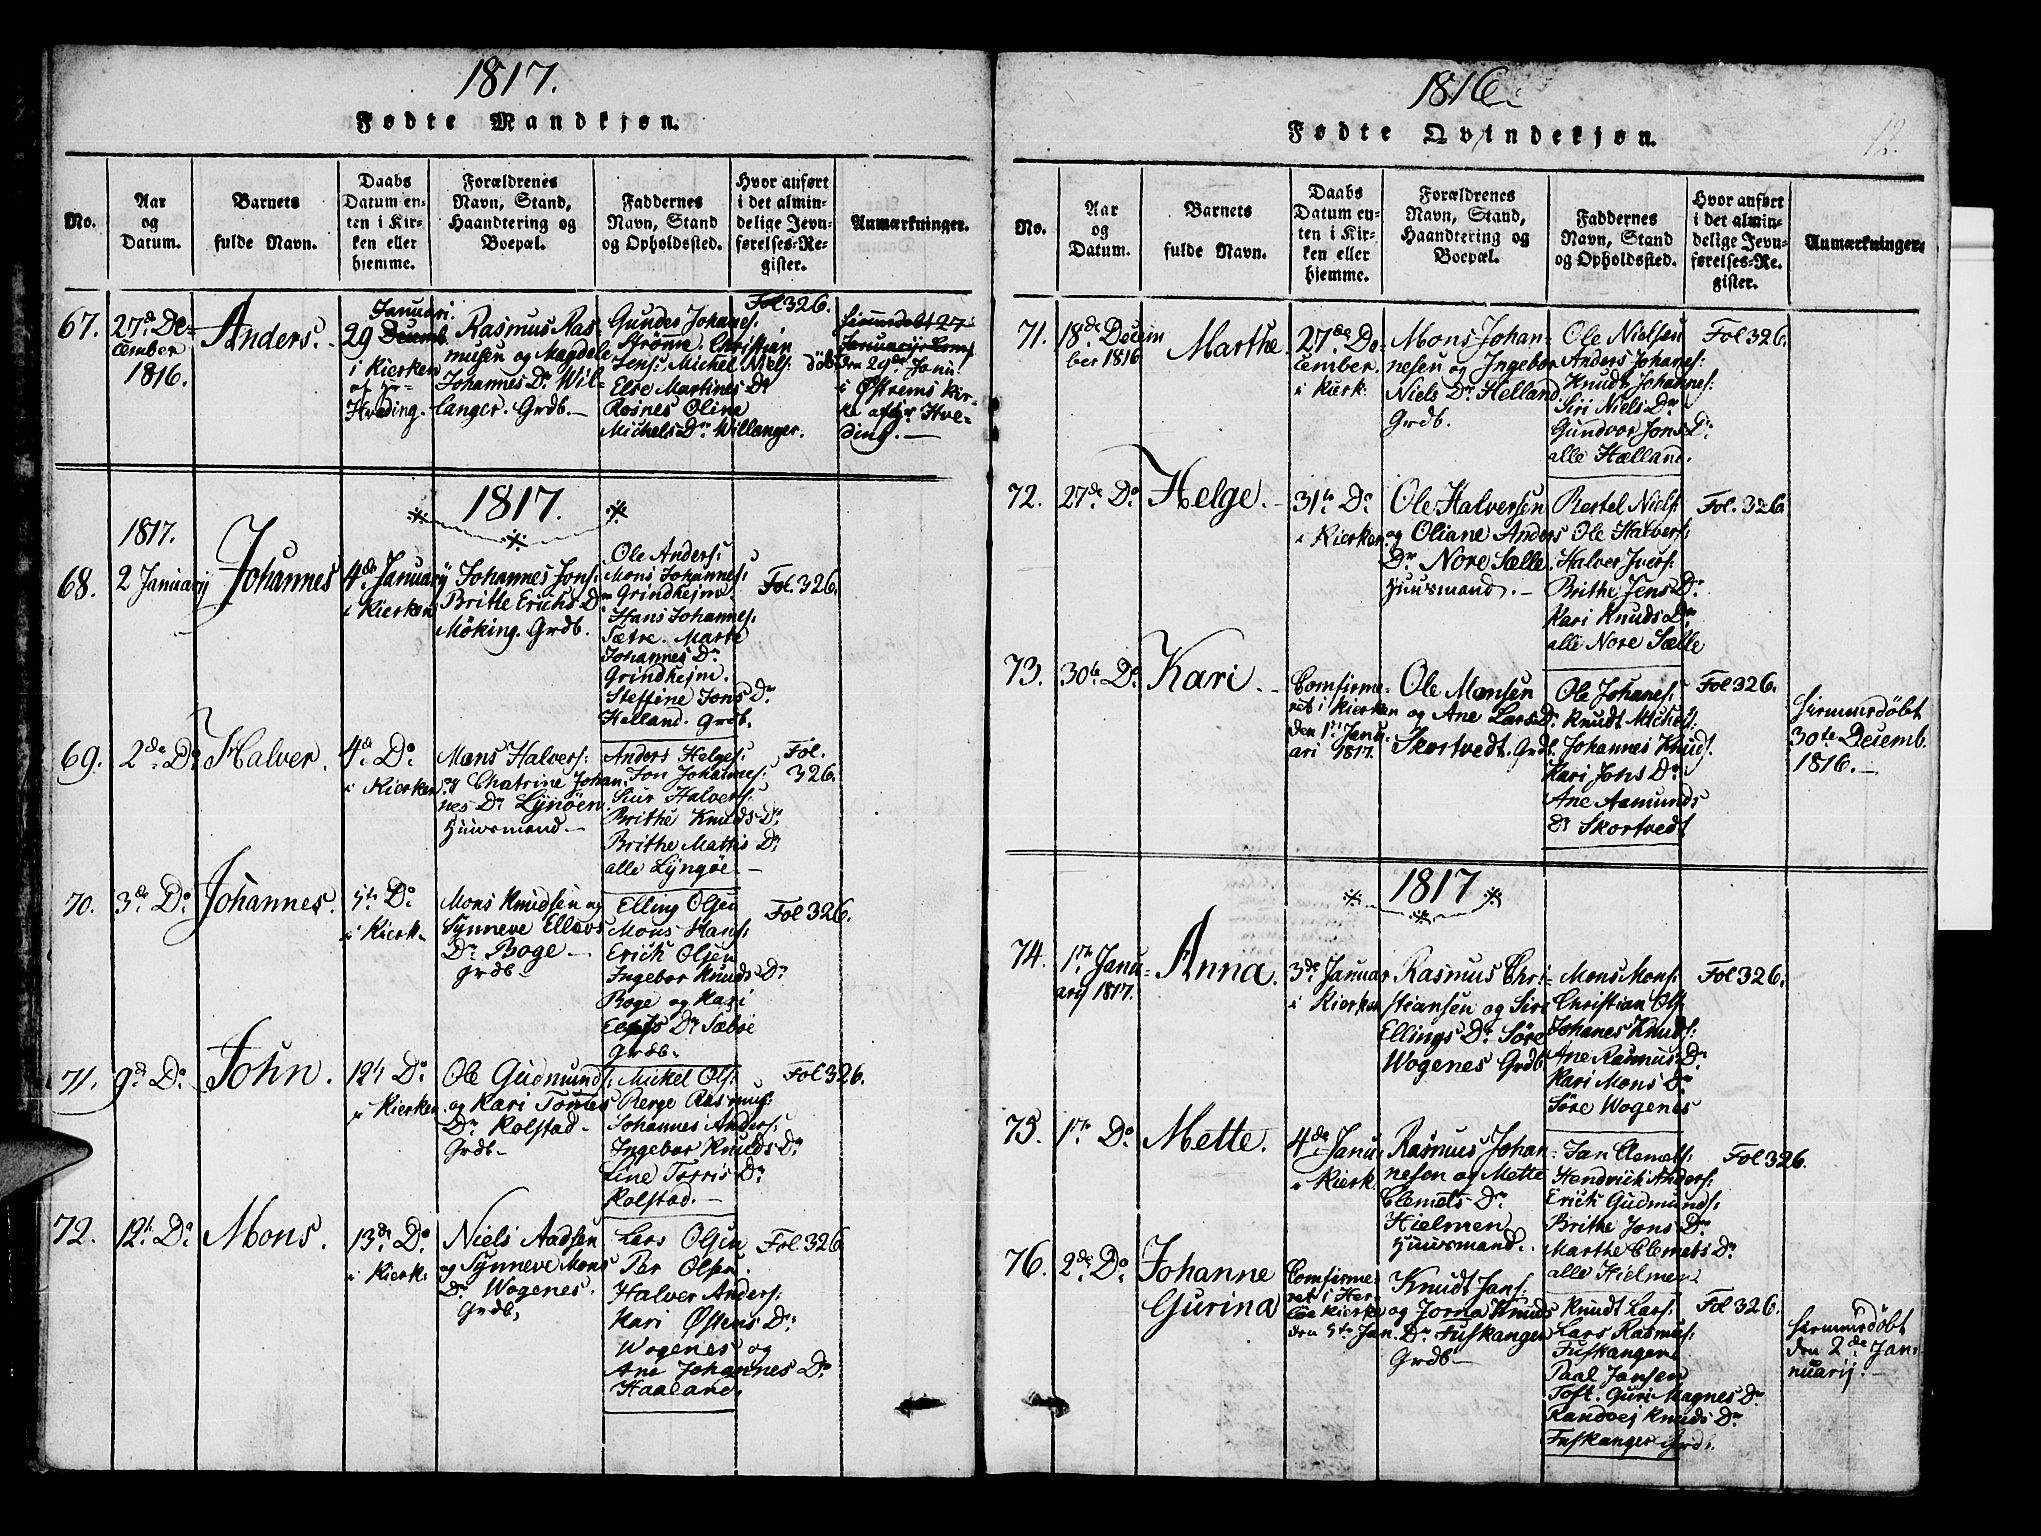 1817.
Fødte Mandkjøn.
No.
Aar
og
Datum.
Barnets
fulde Navn.
Daabs
Datum en-
ten i Kir-
ken eller
hjemme.
Forældrenes
Navn, Stand,
Haandtering og
Boepæl.
Faddernes
Navn, Stand
og Opholdssted.
Hvor anført
i det almin-
delige Jevn-
førelses-Re-
gister.
Anmærkninger.
67.
27de De-
cember
1816.
Anders.
Januari.
29 Decemb.
i Kierken
af Hr
Hveding.
Rasmus Ras-
musen og Magdele
Johannes Dr. Wil-
langer. Grdb.
Gundes Johanes:
Strømø. Christian
Jens: Michel Niels:
Else Martines Dr
Røsnes Oline
Michels Dr. Willanger.
Fol 326.
den 29de Janu
i Østrems Kir-
ke af Hr Hve-
ding.
1817.
1817.
68.
2 January
Johannes
4de January
i Kierken
Johannes Jons:
Britte Erichs Dr
Møking. Grdb.
Ole Anders:
Mons Johannes:
Grindhejm
Hans Johannes:
Sætre. Marte
Johannes Dr.
Grindhejm.
Steffine Jons Dr
Helland. Grdb.
Fol. 326.
69.
2de Do
Halver.
4de Do
i Kierken
Mons Halvers:
og Chatrine Johan-
nes Dr Lynøen
Huusmand
Anders Helges:
Jon Johannes:
Siur Halvers:
Brithe Knuds Dr
Brithe Mattis Dr
alle Lyngøe
Fol.
326.
70.
3de Do
Johannes.
5te Do
i Kierk.
Mons Knudsen og
Synneve Ellevs
Dr Boge
Grdb
Elling Olsen
Mons Hans:
Erich Olsen
Ingebor Knuds Dr
Boge og Kari
Dr Sæbøe
Grdb.
Fol 326.
71.
9de Do
John.
12te Do
i Kierken
Ole Gudmunds:
og Kari Tomes
Dr Kolstad
Grdb
Mickel Ols:
Berge Rasmus:
Johannes Anders:
Ingebor Knuds Dr
Line Torris Dr
Kolstad.
Fol 326.
72.
12te Do
Mons.
13de Do
i Kierk:
Niels Aadsen
og Synneve Mons
Dr Wogenes.
Grdb,
Lars Olsen
Per Olsen.
Halver Anders:
Kari Østens Dr
Wogenes og
Ane Johannes Dr
Haaland.
Fol. 326
1816.
12.
Fødte Qvindekjøn.
No.
Aar
og
Datum.
Barnets
fulde Navn.
Daabs
Datum en-
ten i Kir-
ken eller
hjemme.
Forældrenes
Navn, Stand,
Haandtering og
Boepæl.
Faddernes
Navn, Stand
og Opholdssted.
Hvor anført
i det almin-
delige Jevn-
førelses-Re-
gister.
Anmærkninger.
71.
18de Decem
ber 1816
Marthe
27de De-
cember.
i Kierk.
Mons Johan-
nesen og Ingebor
Niels Dr Helland
Grdb.
Ole Nielsen
Anders Johanes:
Knudt Johannes:
Siri Niels Dr
Gundvor Jons Dr
alle Hælland.
Fol 326.
72.
27de Do
Helge.
31te Do
i Kierken
Ole Halversen
og Oliane Anders
Dr Nore Sælle
Huusmand.
Bertel Niels:
Ole Halvers:
Halver Ivers:
Brithe Jens Dr
Kari Knuds Dr
alle Nore Sælle
Fol. 326
73.
30te Do
Kari.
Comfirme-
ret i Kierken
den 1te Janu-
ari 1817.
Ole Monsen
og Ane Lars Dr
Skortvedt. Grdb.
Ole Johanes:
Knudt Michels:
Johannes Knuds.
Kari Jons Dr
Ane Aamunds
Dr Skortvedt
Fol 326.
Hiemmedøbt
30te Decemb.
1816.
1817
74.
1te Janu-
arij 1817.
Anna.
3de Januar
i Kierken
Rasmus Chri-
stiansen og Siri
Ellings Dr Søre
Wogenes Grdb
Mons Mons:
Christian Ols:
Johanes Knuds:
Ane Rasmus Dr
Kari Mons Dr
Søre Wogenes
Fol 326.
75.
1te Do
Mette.
4de Janu:
i Kierk.
Rasmus Johan-
nesen og Mette
Clemets Dr
Hielmen
Huusmand.
Jan Clemets:
Hendrich Anders:
Erich Gudmunds:
Brithe Jons Dr
Marthe Clemets Dr
alle Hielmen
Fol 326.
76.
2de Do
Johanne
Gurina
Comfirme-
ret i Her-
løe Kierke
den 5te Jan.
Knudt Jans:
og Jorna Knuds
Dr Fuskanger
Grdb
Knudt Lars:
Lars Rasmus:
Fuskanger
Paal Jansen
Toft. Guri Magnes Dr
Randvej Knuds Dr
Fuskanger Grdb.
Fol 326.
Hiemmedøbt
den 2de Jan-
nuarij.